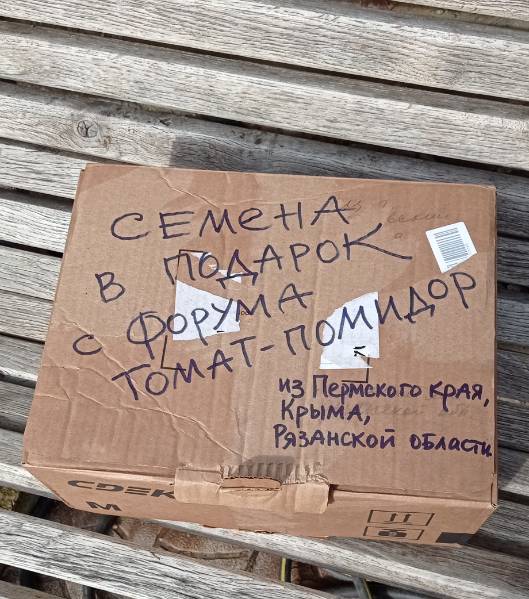 СЕМЕНА
В ПОДАРОК
С ФОРУМА
ТОМАТ-ПОМИДОР
ИЗ ПЕРМСКОГО КРАЯ,
КРЫМА,
РЯЗАНСКОЙ ОБЛАСТИ
CDEK
M